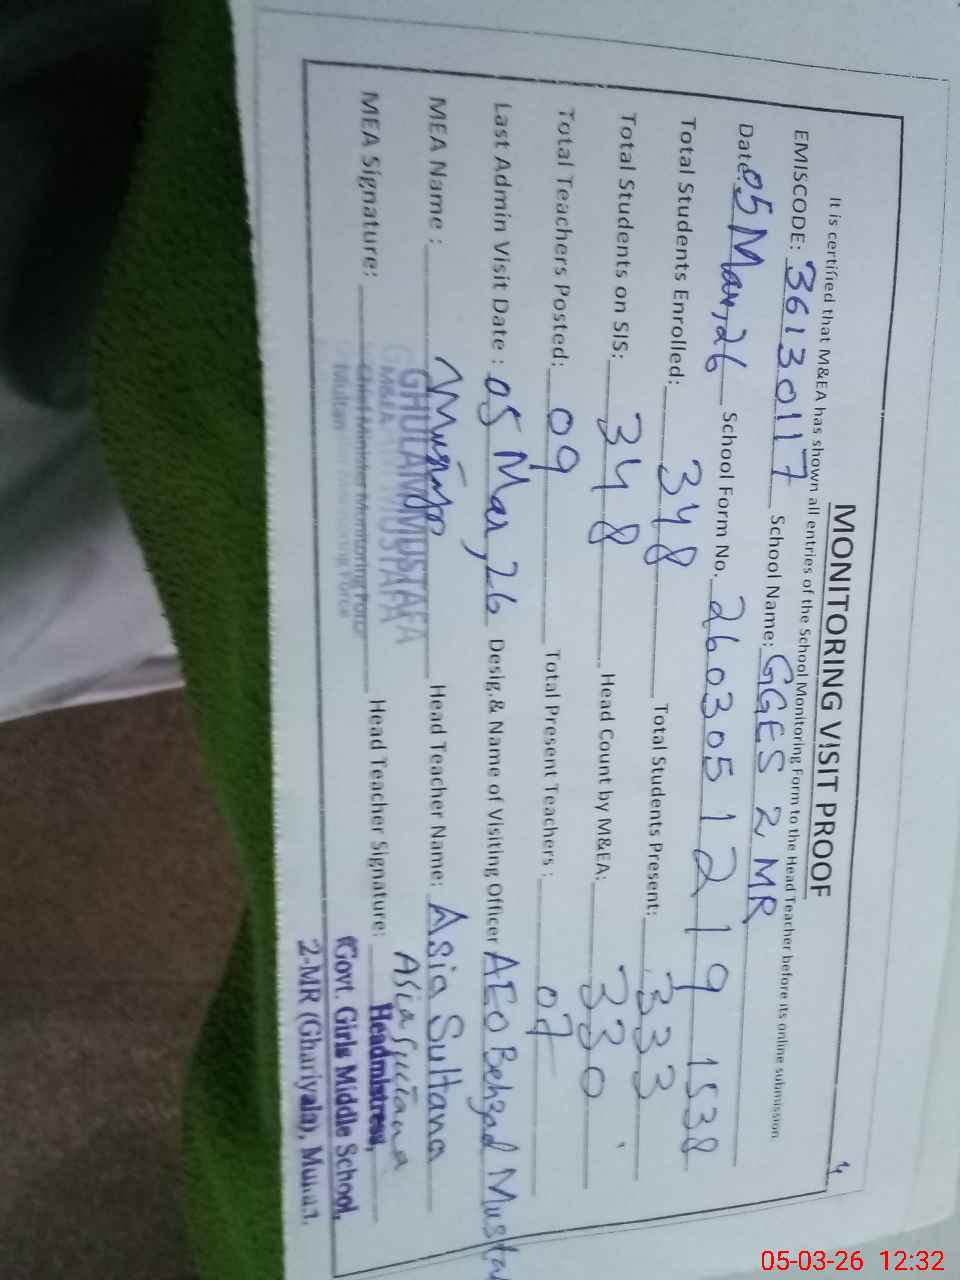 4
MONITORING VISIT PROOF
It is certified that M&EA has shown all entries of the School Monitoring Form to the Head Teacher before its online submission
EMISCODE: 36130117 School Name: GGES 2 MR
Date: 05 Mar, 26 School Form No. 2603051219 1538
Total Students Enrolled: 348 Total Students Present: 333
Total Students on SIS: 348 Head Count by M&EA: 330
Total Teachers Posted: 09 Total Present Teachers : 07
Last Admin Visit Date : 05 Mar, 26 Desig.& Name of Visiting Officer AEO Behzad Mustafa
MEA Name : Mustafa Head Teacher Name: Asia Sultana
GHULAM MUSTAFA
MEA Signature: Head Teacher Signature: Asia Sultana
M&EA
Chief Minister Monitoring Force
Multan
Headmistress,
Govt. Girls Middle School,
2-MR (Ghariyala), Multan.
05-03-26 12:32